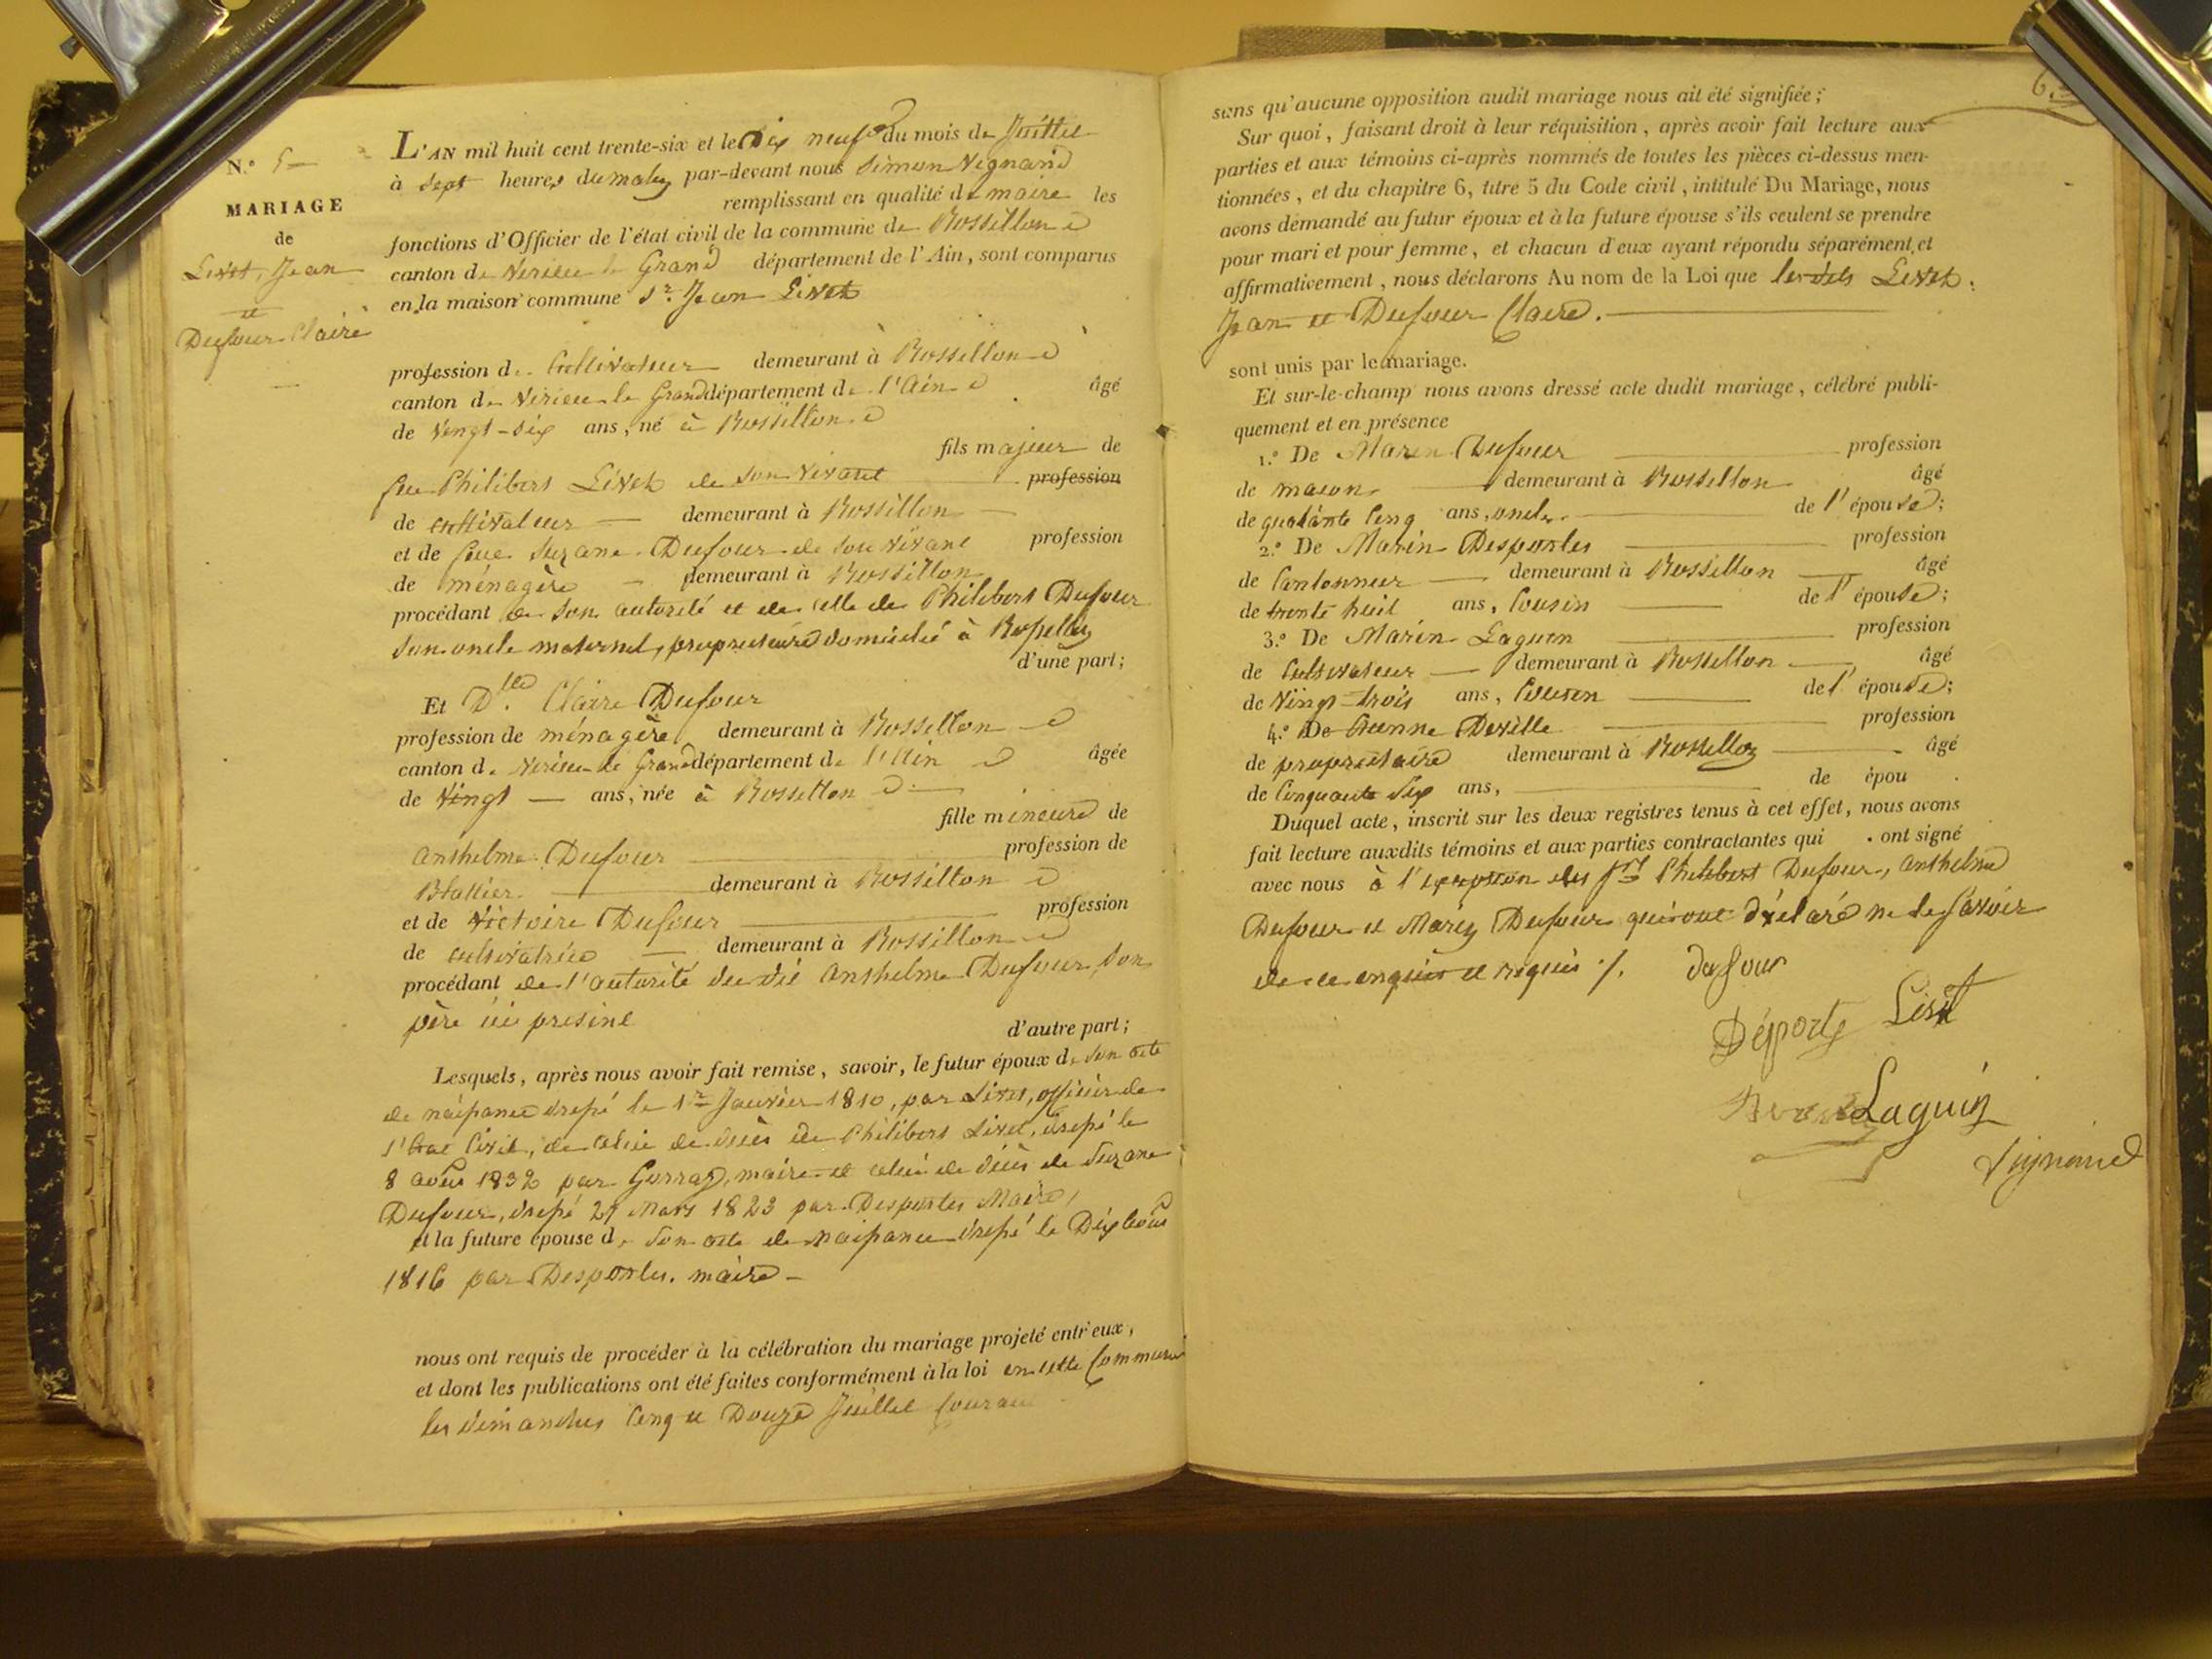 N.° 5
MARIAGE
de
Livet, Jean
et
Dufour Claire
L'AN mil huit cent trente-six et le Dix neuf du mois de Juillet
à Sept heures du matin par-devant nous Simon Vignand
remplissant en qualité de maire les
fonctions d'Officier de l'état civil de la commune de Rossillon
canton de Virieu le Grand département de l'Ain, sont comparus
en la maison commune Sr. Jean Livet
profession de Cultivateur demeurant à Rossillon
canton de Virieu le Grand département de l'Ain âgé
de Vingt-Six ans, né à Rossillon
fils majeur de
feu Philibert Livet de son vivant profession
de cultivateur demeurant à Rossillon
et de feue Suzane Dufour de son vivant profession
de ménagère demeurant à Rossillon
procédant de son autorité et de celle de Philibert Dufour
son oncle maternel, propriétaire domicilié à Rossillon
d'une part;
Et Dlle Claire Dufour
profession de ménagère demeurant à Rossillon
canton de Virieu le Grand département de l'Ain âgée
de Vingt ans, née à Rossillon
fille mineure de
Anthelme Dufour profession de
demeurant à Rossillon
et de Victoire Dufour profession
de cultivatrice demeurant à Rossillon
procédant de l'autorité du dit Anthelme Dufour, son
père ici présent
d'autre part;
Lesquels, après nous avoir fait remise, savoir, le futur époux de son acte
de naissance dressé le 1er Janvier 1810, par Livet, officier de
l'état Civil, de celui de décès de Philibert Livet, dressé le
8 août 1832 par maire et celui de décès de Suzane
Dufour, dressé 27 Mars 1823 par Desportes Maire,
et la future épouse de son acte de naissance dressé le Dix
1816 par Desportes, maire
nous ont requis de procéder à la célébration du mariage projeté entr'eux,
et dont les publications ont été faites conformément à la loi en cette Commune
les dimanches Cinq et Douze Juillet courant
sans qu'aucune opposition audit mariage nous ait été signifiée;
Sur quoi, faisant droit à leur réquisition, après avoir fait lecture aux
parties et aux témoins ci-après nommés de toutes les pièces ci-dessus men-
tionnées, et du chapitre 6, titre 5 du Code civil, intitulé Du Mariage, nous
avons demandé au futur époux et à la future épouse s'ils veulent se prendre
pour mari et pour femme, et chacun d'eux ayant répondu séparément et
affirmativement, nous déclarons Au nom de la Loi que les dits Livet
Jean et Dufour Claire.
sont unis par le mariage.
Et sur-le-champ nous avons dressé acte dudit mariage, célébré publi-
quement et en présence
1.° De Marin Dufour profession
de maçon demeurant à Rossillon âgé
de quarante Cinq ans, oncle de l'épouse;
2.° De Marin Desportes profession
de Cantonnier demeurant à Rossillon âgé
de trente huit ans, Cousin de l'épouse;
3.° De Marin Laguin profession
de Cultivateur demeurant à Rossillon âgé
de Vingt-trois ans, Cousin de l'épouse;
4.° De Etienne Deville profession
de propriétaire demeurant à Rossillon âgé
de Cinquante Six ans, de épou
Duquel acte, inscrit sur les deux registres tenus à cet effet, nous avons
fait lecture auxdits témoins et aux parties contractantes qui ont signé
avec nous à l'exception des Srs Philibert Dufour, Anthelme
Dufour et Marin Dufour qui ont déclaré ne le savoir
de ce enquis et requis ./. dufour
Desporte Livet
Laguin
Vignand